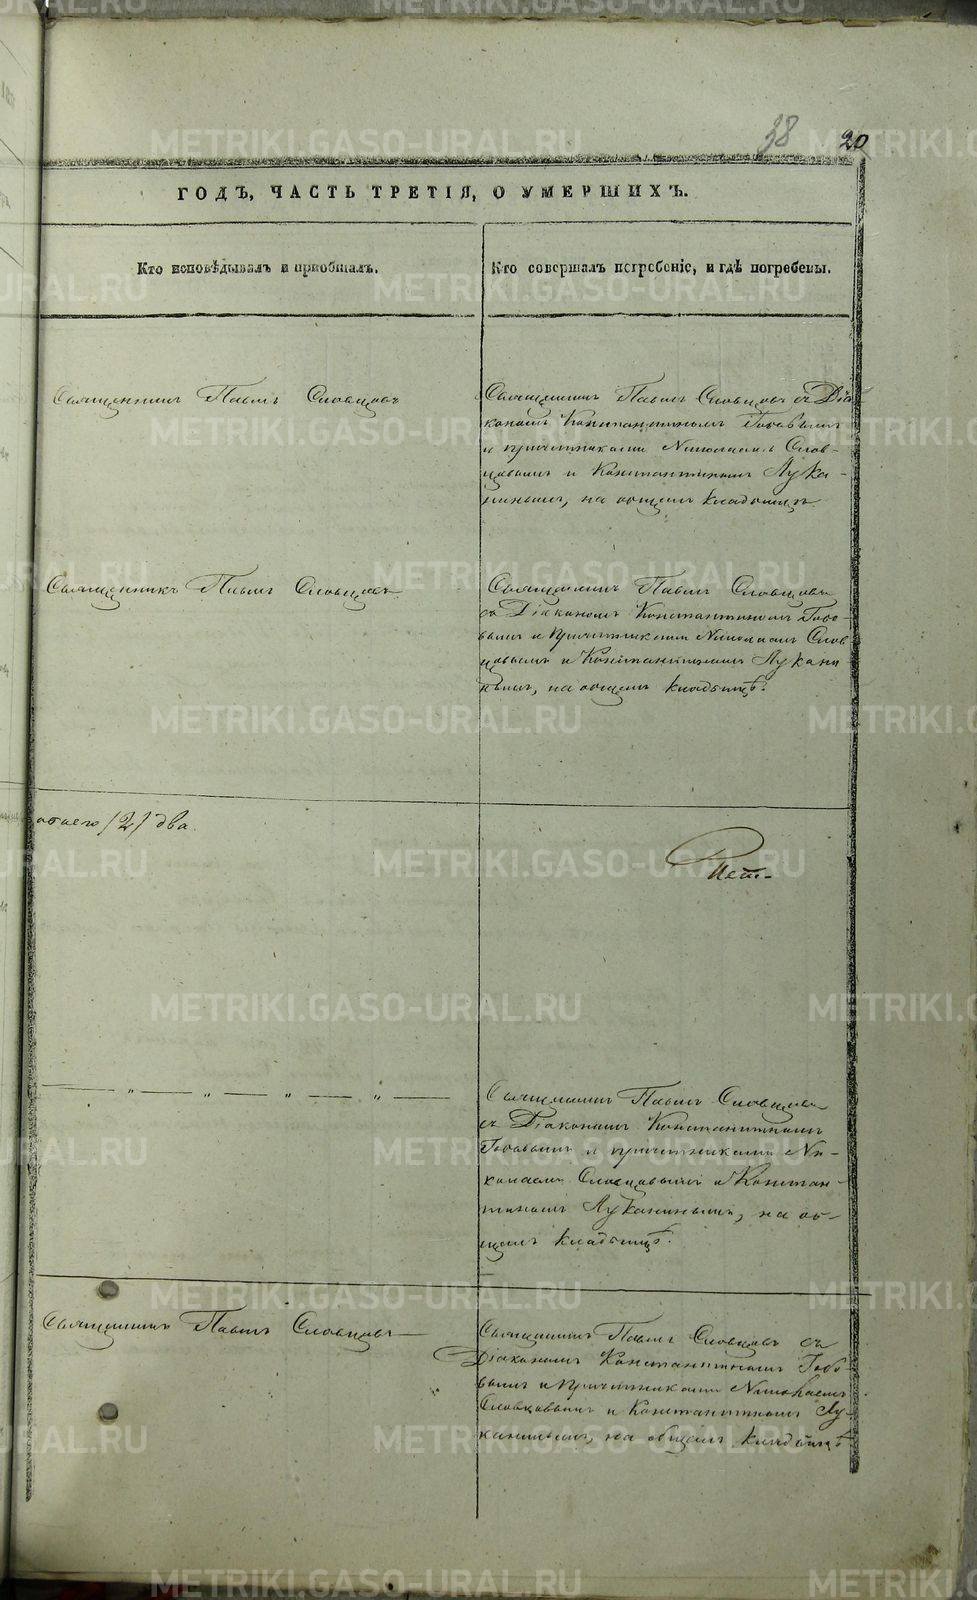 38 20
ГОДЪ, ЧАСТЬ ТРЕТІЯ, О УМЕРШИХЪ.
Кто исповѣдывалъ и пріобщалъ.
Кто совершалъ погребеніе, и гдѣ погребены.
Священникъ Павелъ Словцовъ
Священникъ Павелъ Словцовъ съ Діа-
кономъ Константиномъ
и причетниками Николаемъ Слов-
цовымъ и Константиномъ Лука-
нинымъ, на общемъ кладбищѣ.
Священникъ Павелъ Словцовъ
Священникъ Павелъ Словцовъ
съ Діакономъ Константиномъ
и Причетниками Николаемъ Слов
цовымъ и Константиномъ Лукани
нымъ, на общемъ кладбищѣ.
/2/ два.
Нет-
Священникъ Павелъ Словцовъ
съ Діакономъ Константиномъ
и причетниками Ни-
колаемъ Словцовымъ и Констан-
тиномъ Луканинымъ, на об-
щемъ кладбищѣ.
Священникъ Павелъ Словцовъ
Священникъ Павелъ Словцовъ съ
Діакономъ Константиномъ
и Причетниками Николаемъ
Словцовымъ и Константиномъ Лу-
канинымъ, на общемъ кладбищѣ
METRIKI.GASO-URAL.RU